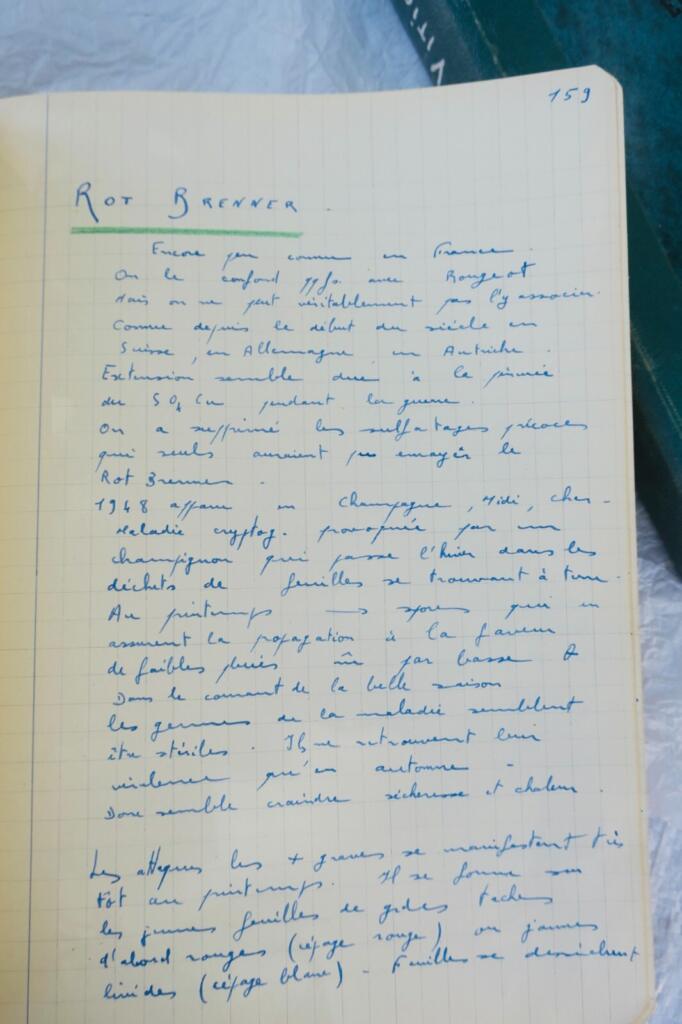 VITI
159
ROT BRENNER.
Encore peu connue en France.
On le confond qqfs avec Rougeot
Mais on ne peut véritablement pas l'y associer.
Connue depuis le début du siècle en
Suisse, en Allemagne en Autriche.
Extension semble due à la pénurie
du SO4 Cu pendant la guerre.
On a supprimé les sulfatages précoces
qui seuls auraient pu enrayer le
Rot Brenner.
1948 apparu en Champagne, Midi, Cher-
Maladie cryptog. provoquée par un
champignon qui passe l'hiver dans les
déchets de feuilles se trouvant à terre.
Au printemps → spores qui en
assurent la propagation à la faveur
de faibles pluies m̂ par basse θ
Dans le courant de la belle saison
les germes de la maladie semblent
être stériles. Ils ne retrouvent leur
virulence qu'en automne -
Donc semble craindre sécheresse et chaleur.
Les attaques les + graves se manifestent très
tôt au printemps. Il se forme sur
les jeunes feuilles de grdes taches
d'abord rouges (cépage rouge) ou jaunes
livides (cépage blanc) - Feuilles se dessèchent